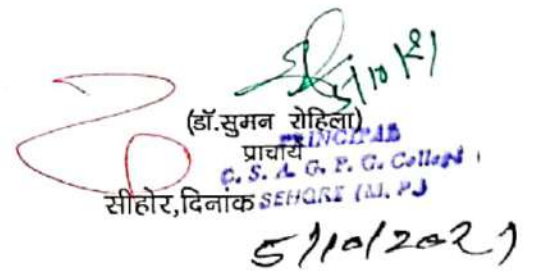 5/10/21
(डॉ.सुमन रोहिला)
PRINCIPAL
प्राचार्य
C. S. A. G. P. G. College
सीहोर,दिनांक SEHORE (M. P.)
5/10/2021